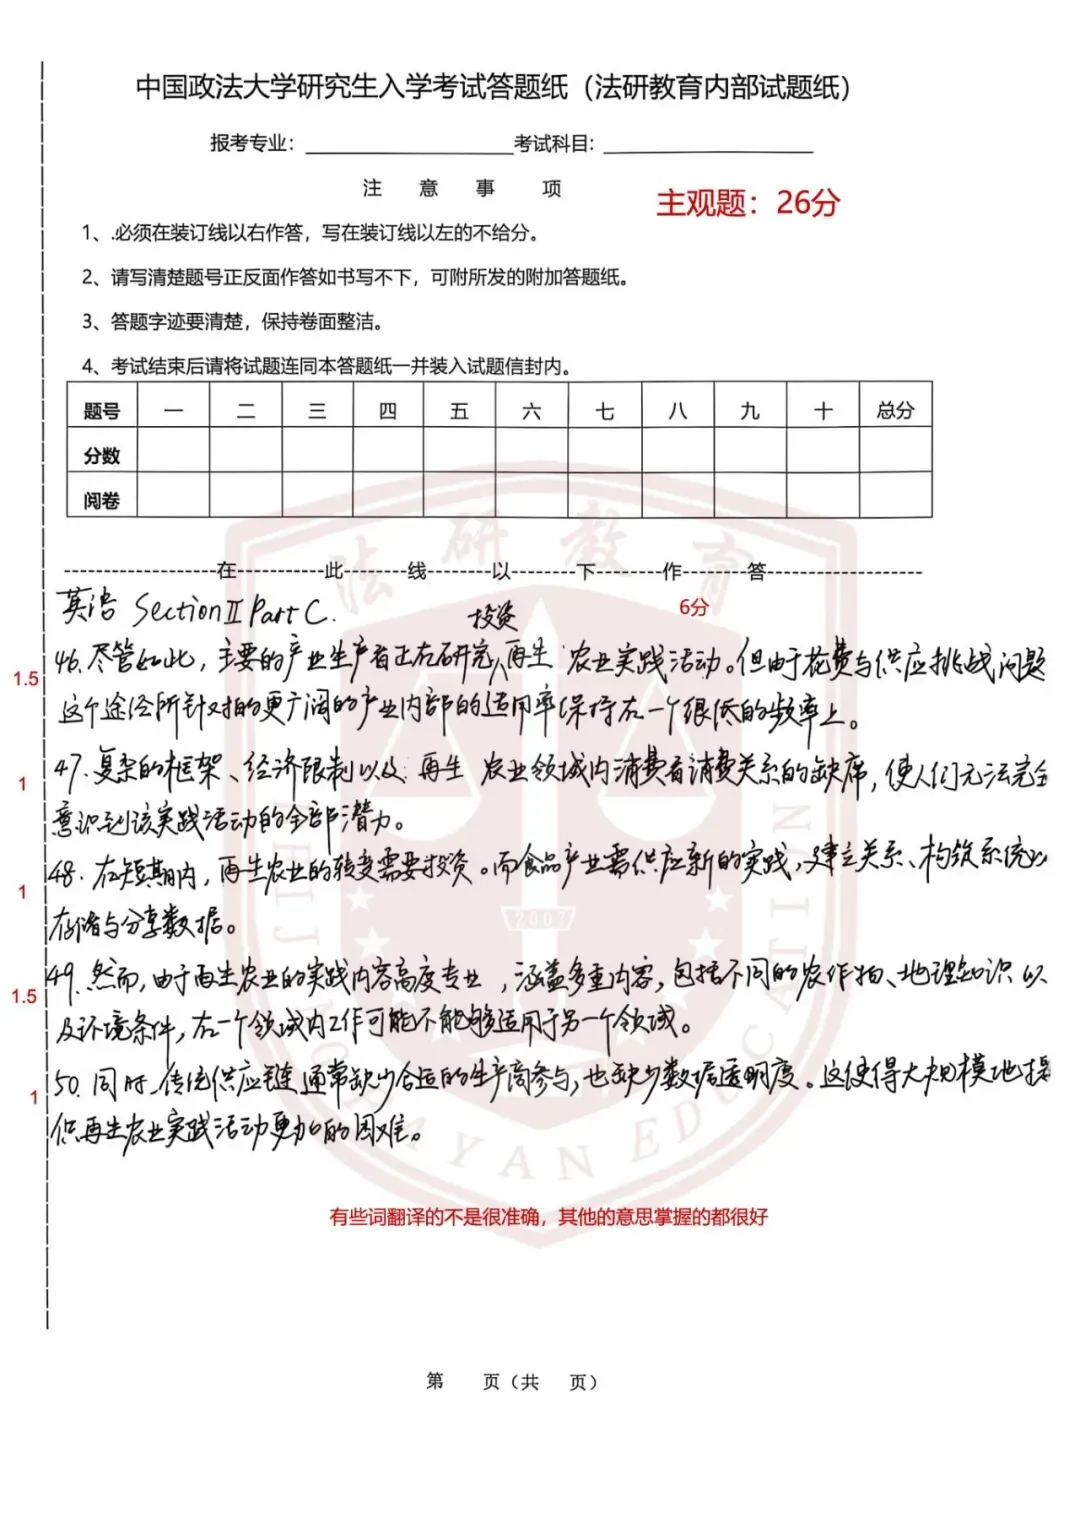 中国政法大学研究生入学考试答题纸（法研教育内部试题纸）
报考专业：考试科目：
注 意 事 项
主观题：26分
1、.必须在装订线以右作答，写在装订线以左的不给分。
2、请写清楚题号正反面作答如书写不下，可附所发的附加答题纸。
3、答题字迹要清楚，保持卷面整洁。
4、考试结束后请将试题连同本答题纸一并装入试题信封内。
题号 一 二 三 四 五 六 七 八 九 十 总分
分数
阅卷
在 此 线 以 下 作 答
英语 Section II Part C. 6分
投资
1.5 46.尽管如此，主要的产业生产者正在研究再生农业实践活动。但由于花费与供应挑战问题
这个途径所针对的更广阔的产业内部的适用率保持在一个很低的频率上。
1 47.复杂的框架、经济限制以及再生农业领域内消费者消费关系的缺席，使人们无法完全
意识到该实践活动的全部潜力。
1 48.在短期内，再生农业的转变需要投资。而食品产业需供应新的实践，建立关系、构筑系统以
存储与分享数据。
1.5 49.然而，由于再生农业的实践内容高度专业，涵盖多重内容，包括不同的农作物、地理知识以
及环境条件，在一个领域内工作可能不能够适用于另一个领域。
1 50.同时，传统供应链通常缺少合适的生产商参与，也缺少数据透明度。这使得大规模地提
供再生农业实践活动更加的困难。
有些词翻译的不是很准确，其他的意思掌握的都很好
第 页（共 页）
法研教育
JINGFAYAN EDUCATION
2007